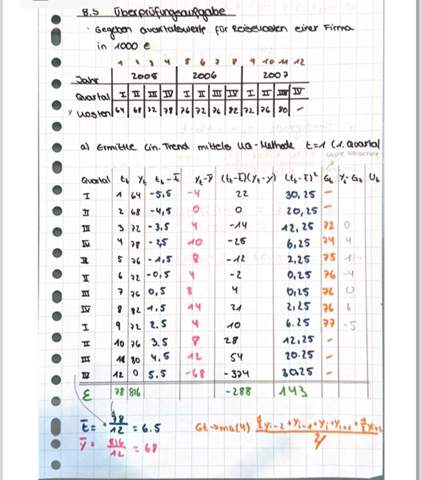 8.5 Überprüfungsaufgabe
· Gegeben Quartalswerte für Reisekosten einer Firma
in 1000 €
1 2 3 4 5 6 7 8 9 10 11 12
Jahr 2005 2006 2007
Quartal I II III IV I II III IV I II III IV
Y Kosten 64 68 72 78 76 72 76 82 72 76 80 –
a) Ermittle lin. Trend mittels UQ-Methode t=1 (1. Quartal
Quartal tᵢ yᵢ tᵢ-t̅ yᵢ-y̅ (tᵢ-t̅)(yᵢ-y) (tᵢ-t̅)² Gₜ Yᵢ-Gₜ Uₜ
I 1 64 -5,5 -4 22 30,25 –
II 2 68 -4,5 0 0 20,25 –
III 3 72 -3,5 4 -14 12,25 72 0
IV 4 78 -2,5 10 -25 6,25 74 4
I 5 76 -1,5 8 -12 2,25 75 1
II 6 72 -0,5 4 -2 0,25 76 -4
III 7 76 0,5 8 4 0,25 76 0
IV 8 82 1,5 14 21 2,25 76 6
I 9 72 2.5 4 10 6.25 77 -5
II 10 76 3.5 8 28 12,25 –
III 11 80 4,5 12 54 20.25 –
IV 12 0 5.5 -68 -374 30.25 –
Σ 78 816 -288 143
t̅ = 78/12 = 6.5
y̅ = 816/12 = 68
Gt → ma(4)